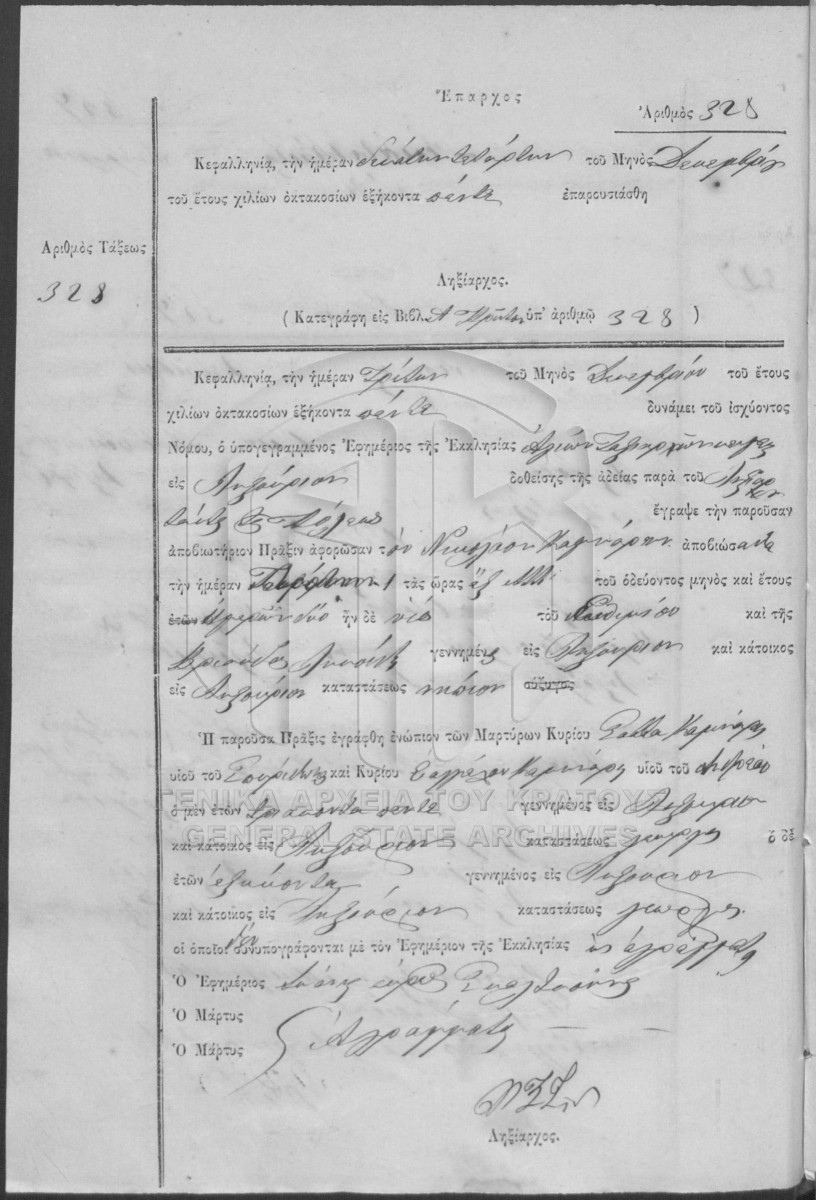 Ἔπαρχος
Ἀριθμὸς 328
Κεφαλληνίᾳ, τὴν ἡμέραν δεκάτην τετάρτην τοῦ Μηνὸς Δεκεμβρίου
τοῦ ἔτους χιλίων ὀκτακοσίων ἑξήκοντα πέντε ἐπαρουσιάσθη
Ἀριθμὸς Τάξεως
328
Ληξίαρχος.
( Κατεγράφη εἰς Βιβλ. Α Πρῶτον ὑπ' ἀριθμῷ 328 )
Κεφαλληνίᾳ, τὴν ἡμέραν Τρίτην τοῦ Μηνὸς Δεκεμβρίου τοῦ ἔτους
χιλίων ὀκτακοσίων ἑξήκοντα πέντε δυνάμει τοῦ ἰσχύοντος
Νόμου, ὁ ὑπογεγραμμένος Ἐφημέριος τῆς Ἐκκλησίας Ἁγίων Ταξιαρχῶν
εἰς Ληξούριον δοθείσης τῆς ἀδείας παρὰ τοῦ Ληξιάρχου
τῆς Πόλεως ἔγραψε τὴν παροῦσαν
ἀποβιωτήριον Πρᾶξιν ἀφορῶσαν τὸν Νικόλαον Καμινάρην ἀποβιώσαντα
τὴν ἡμέραν τὰς ὥρας ἓξ Μ.Μ. τοῦ ὁδεύοντος μηνὸς καὶ ἔτους
ἐτῶν ἡμερῶν δύο ἦν δὲ υἱὸς τοῦ Εὐθυμίου καὶ τῆς
γεννημένος εἰς Ληξούριον καὶ κάτοικος
εἰς Ληξούριον καταστάσεως νήπιον σύζυγος
Ἡ παροῦσα Πρᾶξις ἐγράφη ἐνώπιον τῶν Μαρτύρων Κυρίου Καμινάρη
υἱοῦ τοῦ καὶ Κυρίου Εὐαγγέλου Καμινάρη υἱοῦ τοῦ Ἀνδρέου
ὁ μὲν ἐτῶν τριάκοντα πέντε γεννημένος εἰς Ληξούριον
καὶ κάτοικος εἰς Ληξούριον καταστάσεως γεωργὸς ὁ δὲ
ἐτῶν ἑξήκοντα γεννημένος εἰς Ληξούριον
καὶ κάτοικος εἰς Ληξούριον καταστάσεως γεωργός.
οἱ ὁποῖοι δὲν συνυπογράφονται μὲ τὸν Ἐφημέριον τῆς Ἐκκλησίας ὡς ἀγράμματοι
Ὁ Ἐφημέριος
Ὁ Μάρτυς
Ὁ Μάρτυς Ἀγράμματοι
Ληξίαρχος.
ΓΕΝΙΚΑ ΑΡΧΕΙΑ ΤΟΥ ΚΡΑΤΟΥΣ
GENERAL STATE ARCHIVES